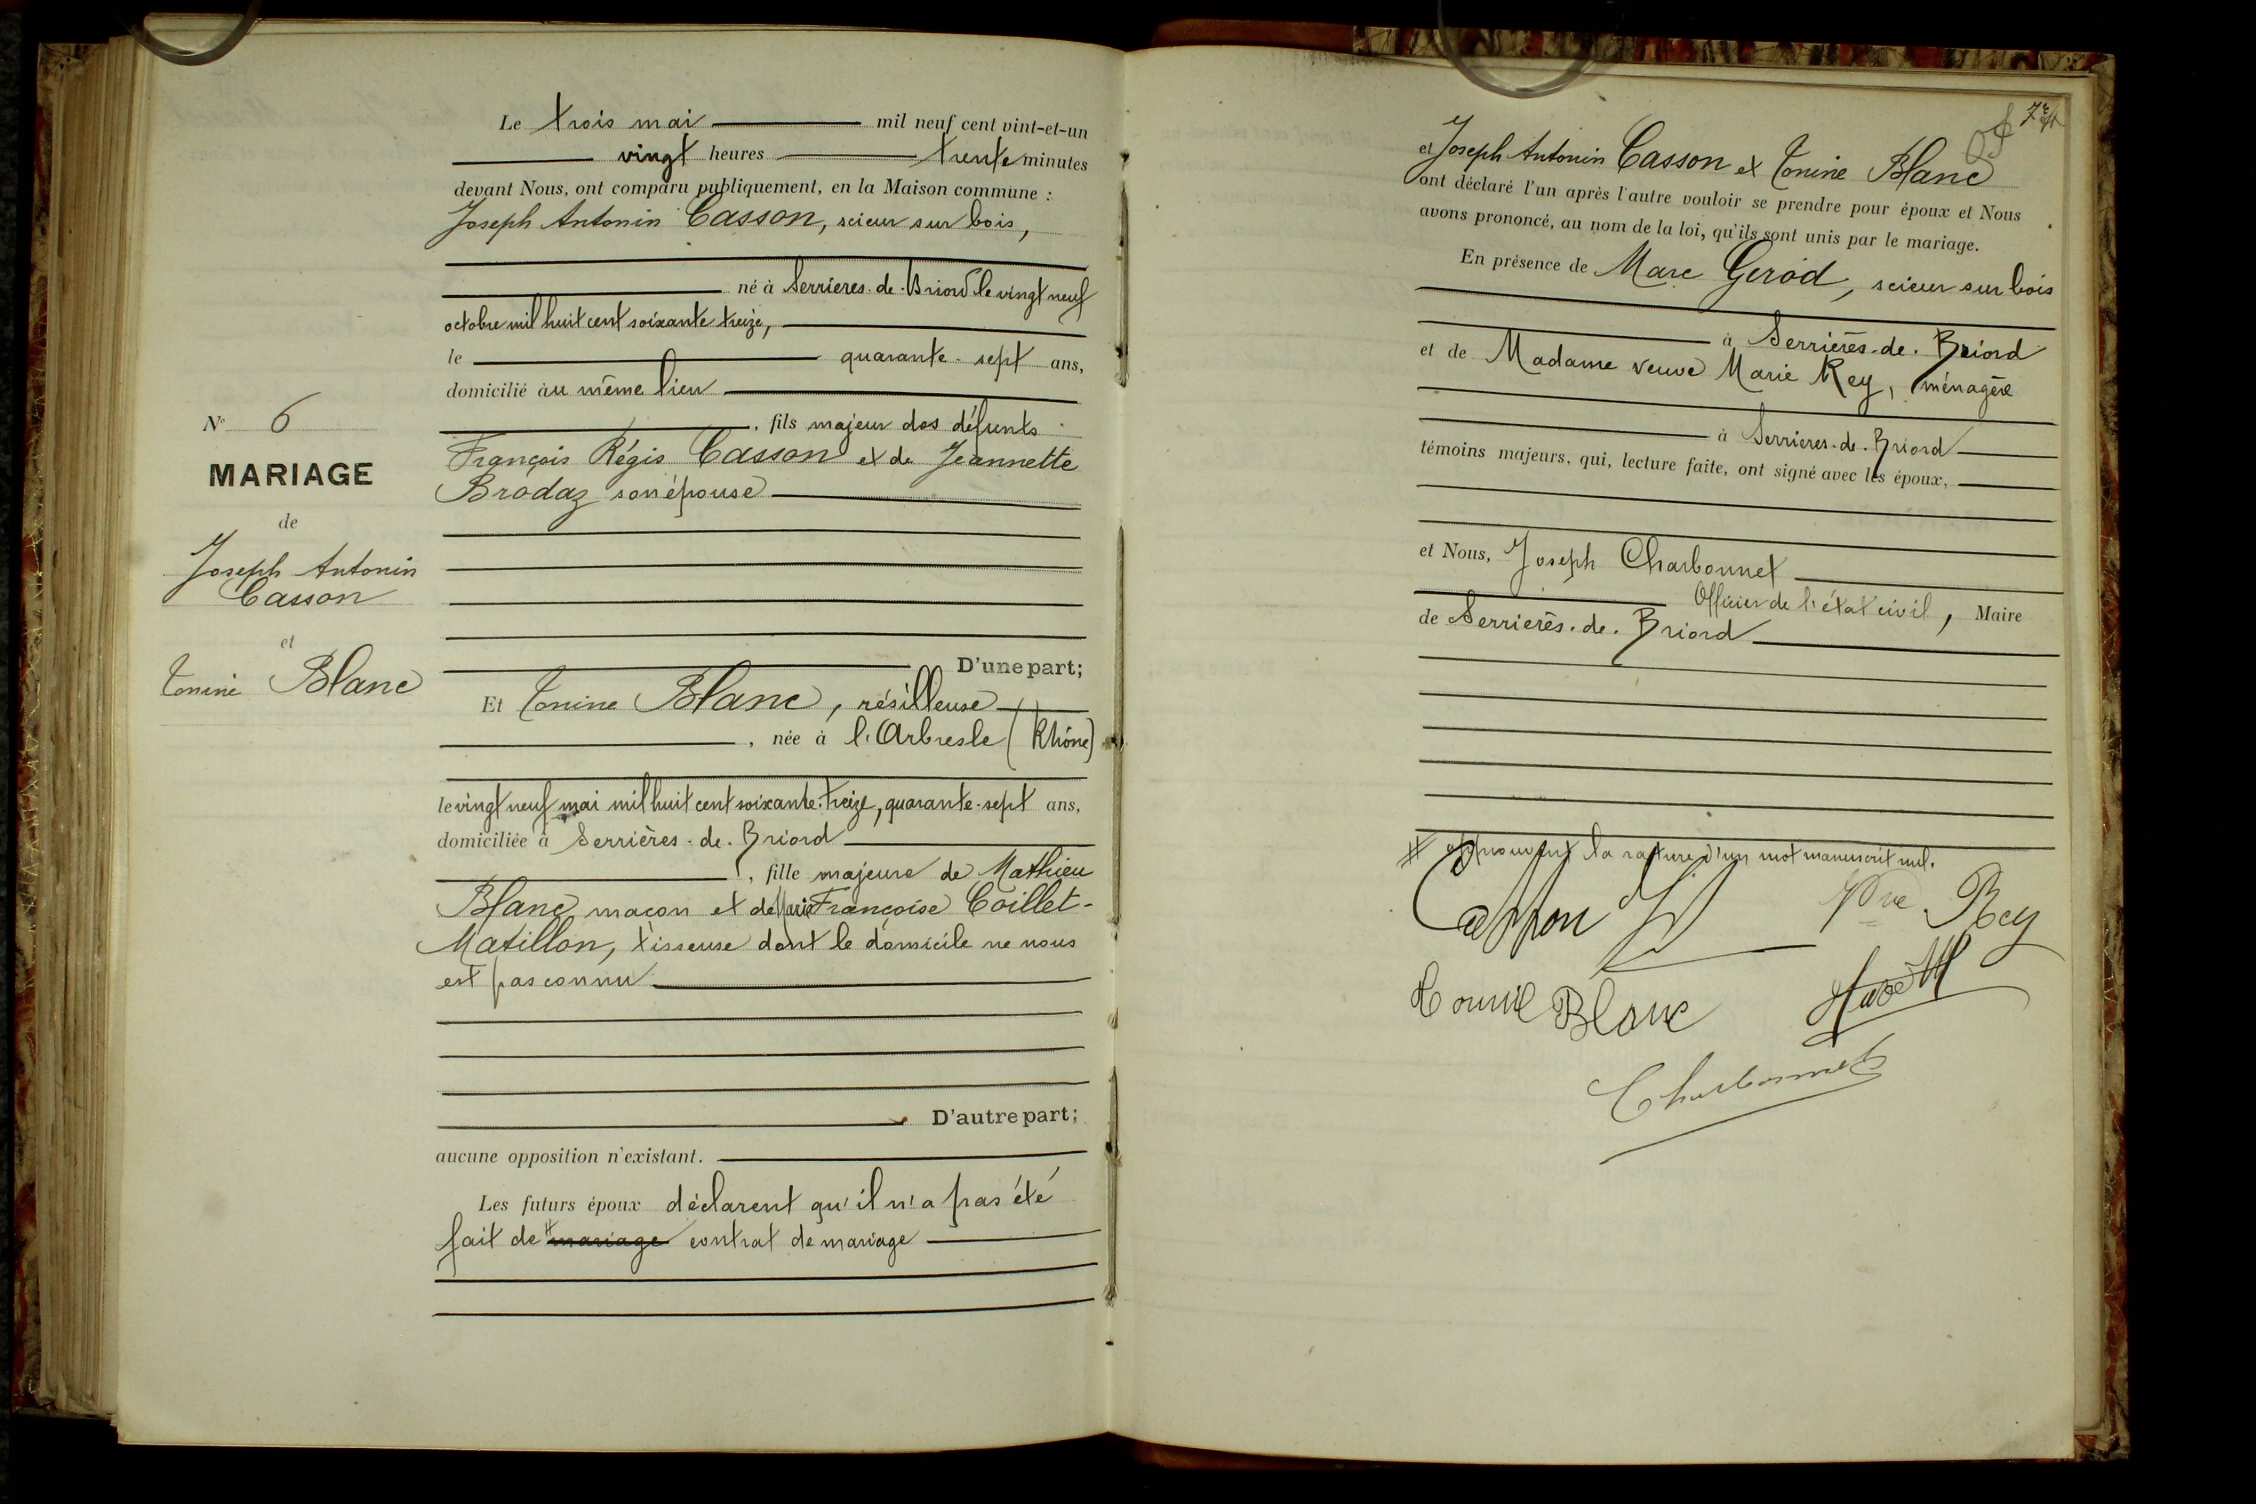 N° 6
MARIAGE
de
Joseph Antonin
Casson
et
Tonine Blanc
Le trois mai mil neuf cent vint-et-un
vingt heures trente minutes
devant Nous, ont comparu publiquement, en la Maison commune :
Joseph Antonin Casson, scieur sur bois,
né à Serrières-de-Briord le vingt neuf
octobre mil huit cent soixante treize,
le quarante-sept ans,
domicilié àu même lieu
, fils majeur des défunts
François Régis Casson et de Jeannette
Brodaz son épouse
D'une part;
Et Tonine Blanc, résilleuse
, née à l'Arbresle (Rhône)
le vingt neuf mai mil huit cent soixante-treize, quarante-sept ans,
domiciliée à Serrières-de-Briord
, fille majeure de Mathieu
Blanc maçon et de Marie Françoise Coillet-
Matillon, tisseuse dont le domicile ne nous
est pas connu
D'autre part;
aucune opposition n'existant.
Les futurs époux déclarent qu'il n'a pas été
fait de # mariage contrat de mariage
et Joseph Antonin Casson et Tonine Blanc
ont déclaré l'un après l'autre vouloir se prendre pour époux et Nous
avons prononcé, au nom de la loi, qu'ils sont unis par le mariage.
En présence de Marc Gerod, scieur sur bois
à Serrières-de-Briord
et de Madame veuve Marie Rey, ménagère
à Serrieres-de-Briord
témoins majeurs, qui, lecture faite, ont signé avec les époux,
et Nous, Joseph Charbonnet
Officier de l'état civil, Maire
de Serrières-de-Briord
# approuvent la rature d'un mot manuscrit nul.
Casson
Vve Rey
Tonine Blanc
Charbonnet